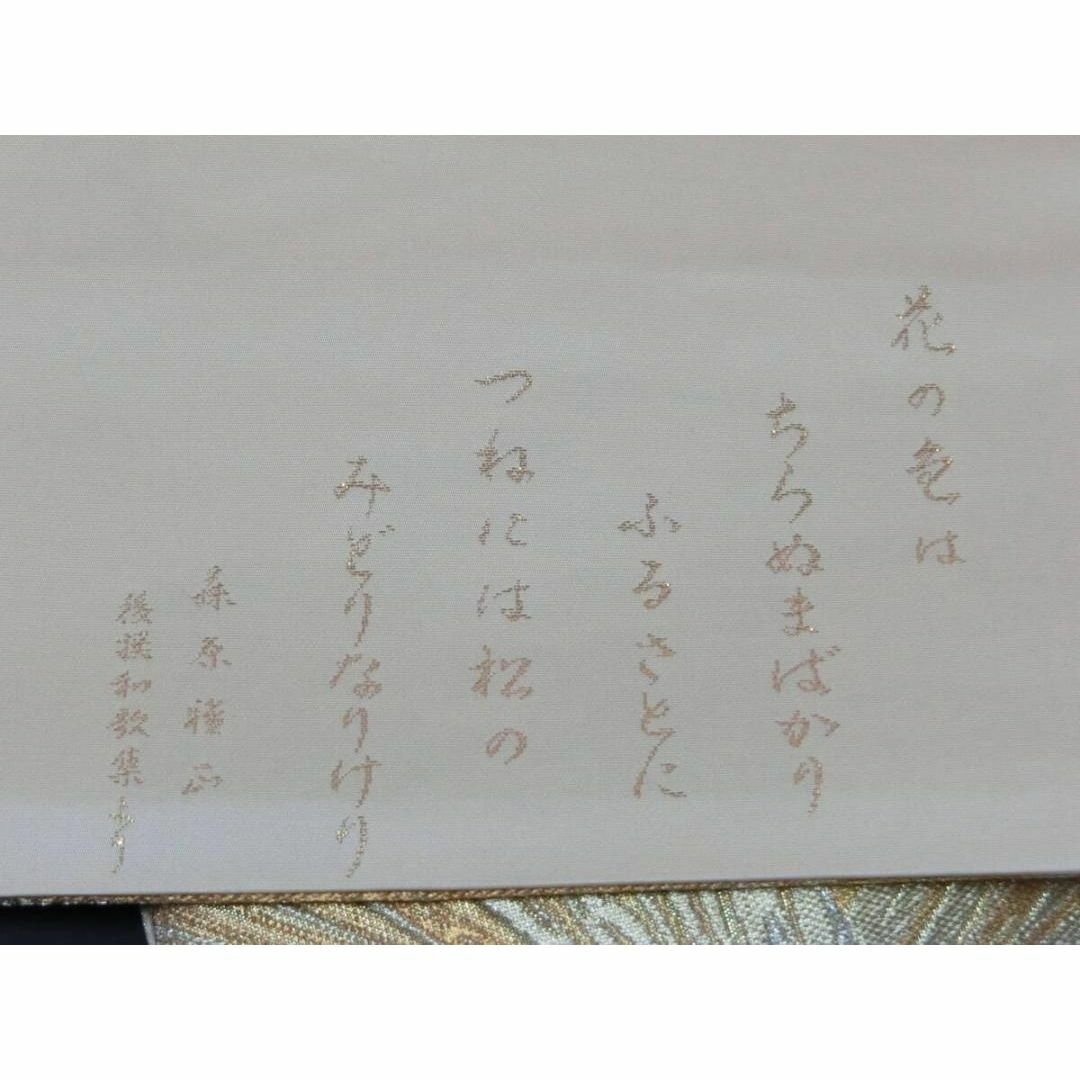 花の色は
ちらぬまばかり
ふるさとに
つねには松の
みどりなりけり
藤原雅正
後撰和歌集より